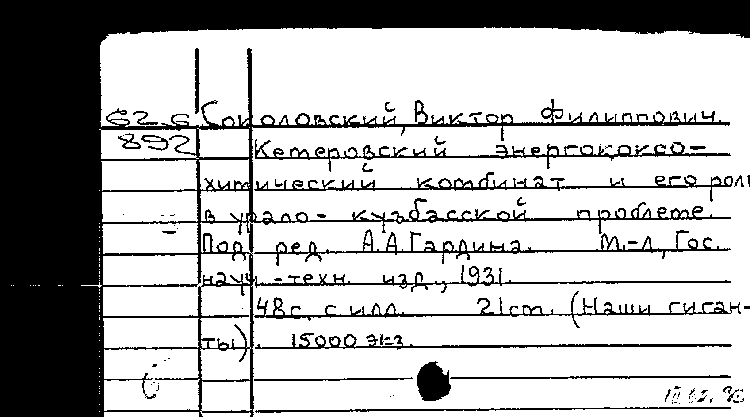 62.6 Соколовский, Виктор Филиппович.
892 Кемеровский энергококсо-
химический комбинат и его роль
в урало-кузбасской проблеме.
Под ред. А.А.Гардина. М.-Л., Гос.
науч.-техн. изд., 1931.
48с. с илл. 21см. (Наши гиган-
ты). 15000 экз.